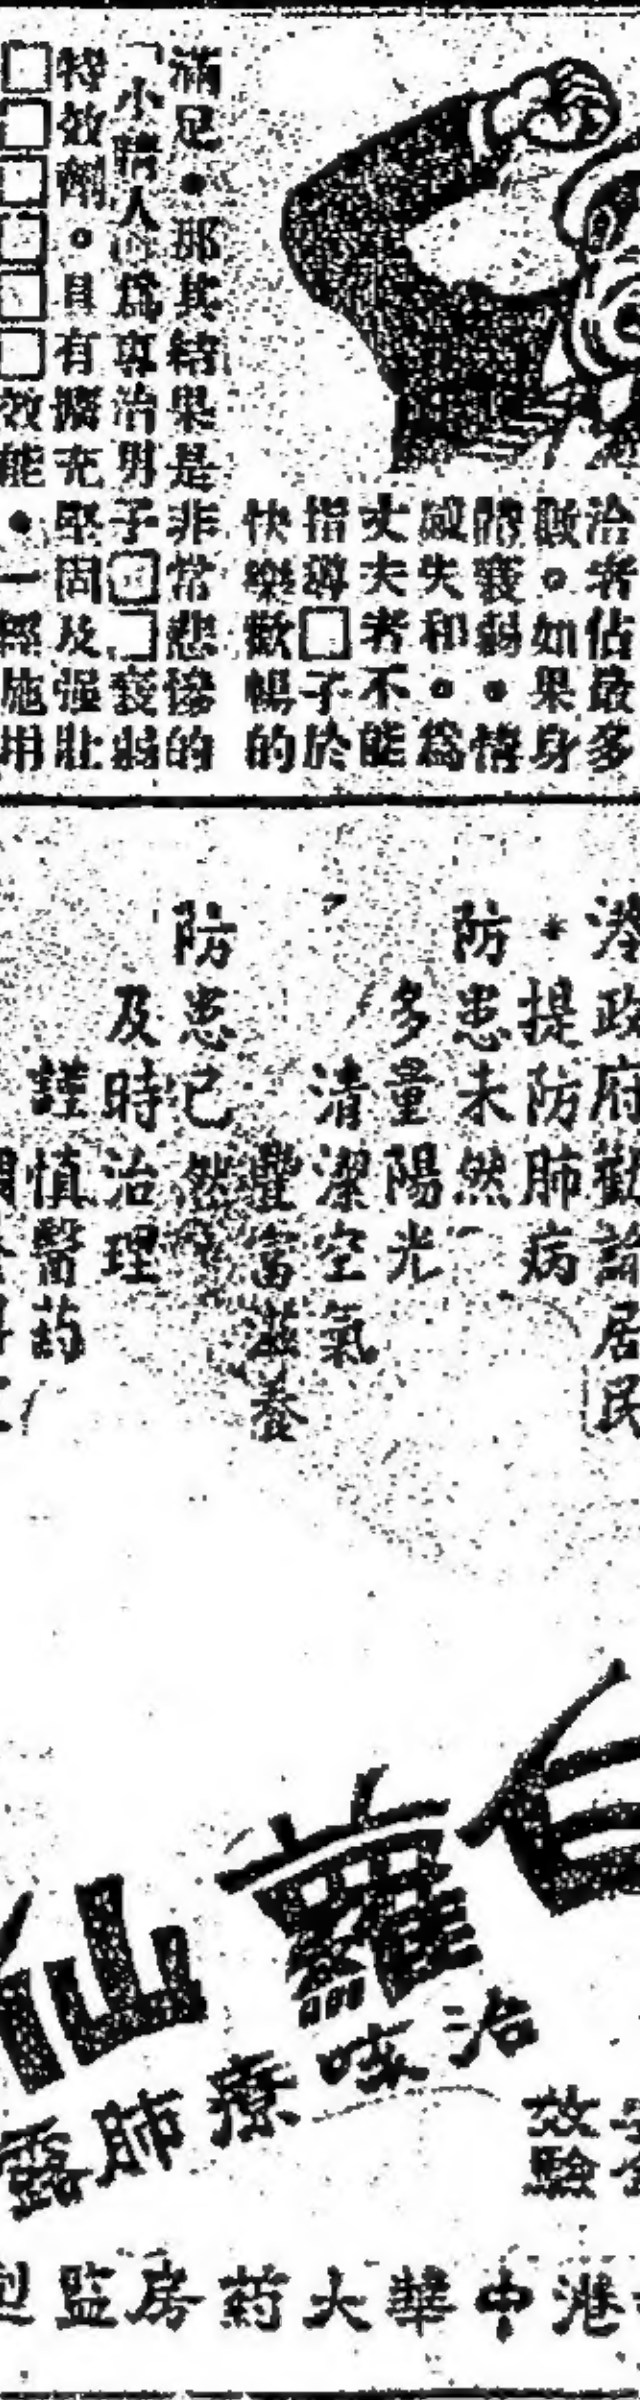 洽者佔最多
敗。如果身
體衰弱。情
感失和。為
丈夫者不能
指導□子於
快樂歡暢的
滿足。那其結果是非常悲慘的
「小情人」為專治男子□□衰弱
特效劑。具有擴充堅固及强壯
□□□□□□效能。一經施用
港政府勸諭居民
提防肺病
防患未然
多量陽光
清潔空氣
豐富滋養
防患已然
及時治理
謹慎醫药
白蘿仙
治咳療肺露
效驗
港中華大药房監製